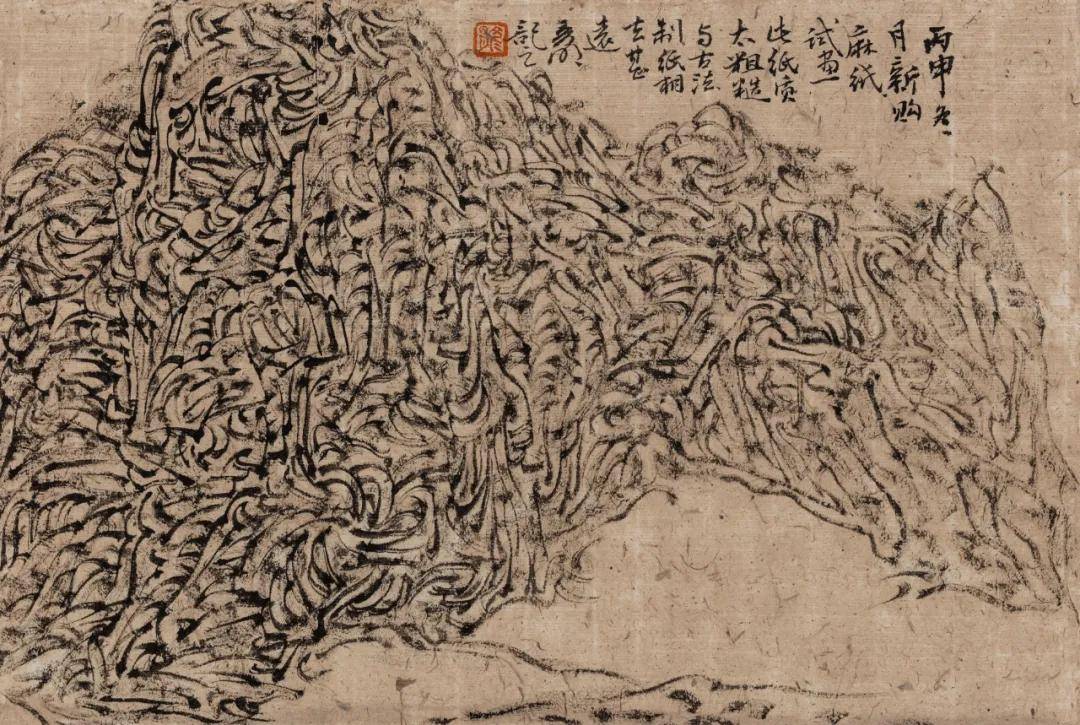 丙申冬
月新购
麻纸
试画
此纸质
太粗糙
与古法
制纸相
去甚
远
记之